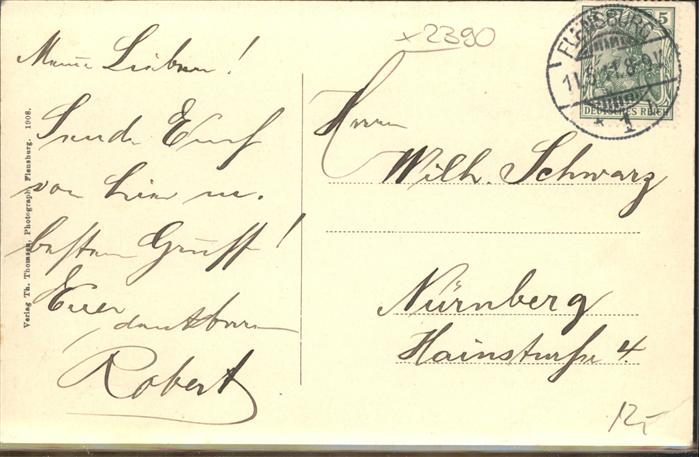 Meine Lieben!
Sende Euch
von hier m.
besten Gruß!
Euer
dankbarer
Robert
Verlag Th. Thomsen, Photograph, Flensburg. 1908.
x2390
Herrn
Wilh. Schwarz
Nürnberg
Hainstraße 4
FLENSBURG
8-9
* 1
5
DEUTSCHES REICH
12,-